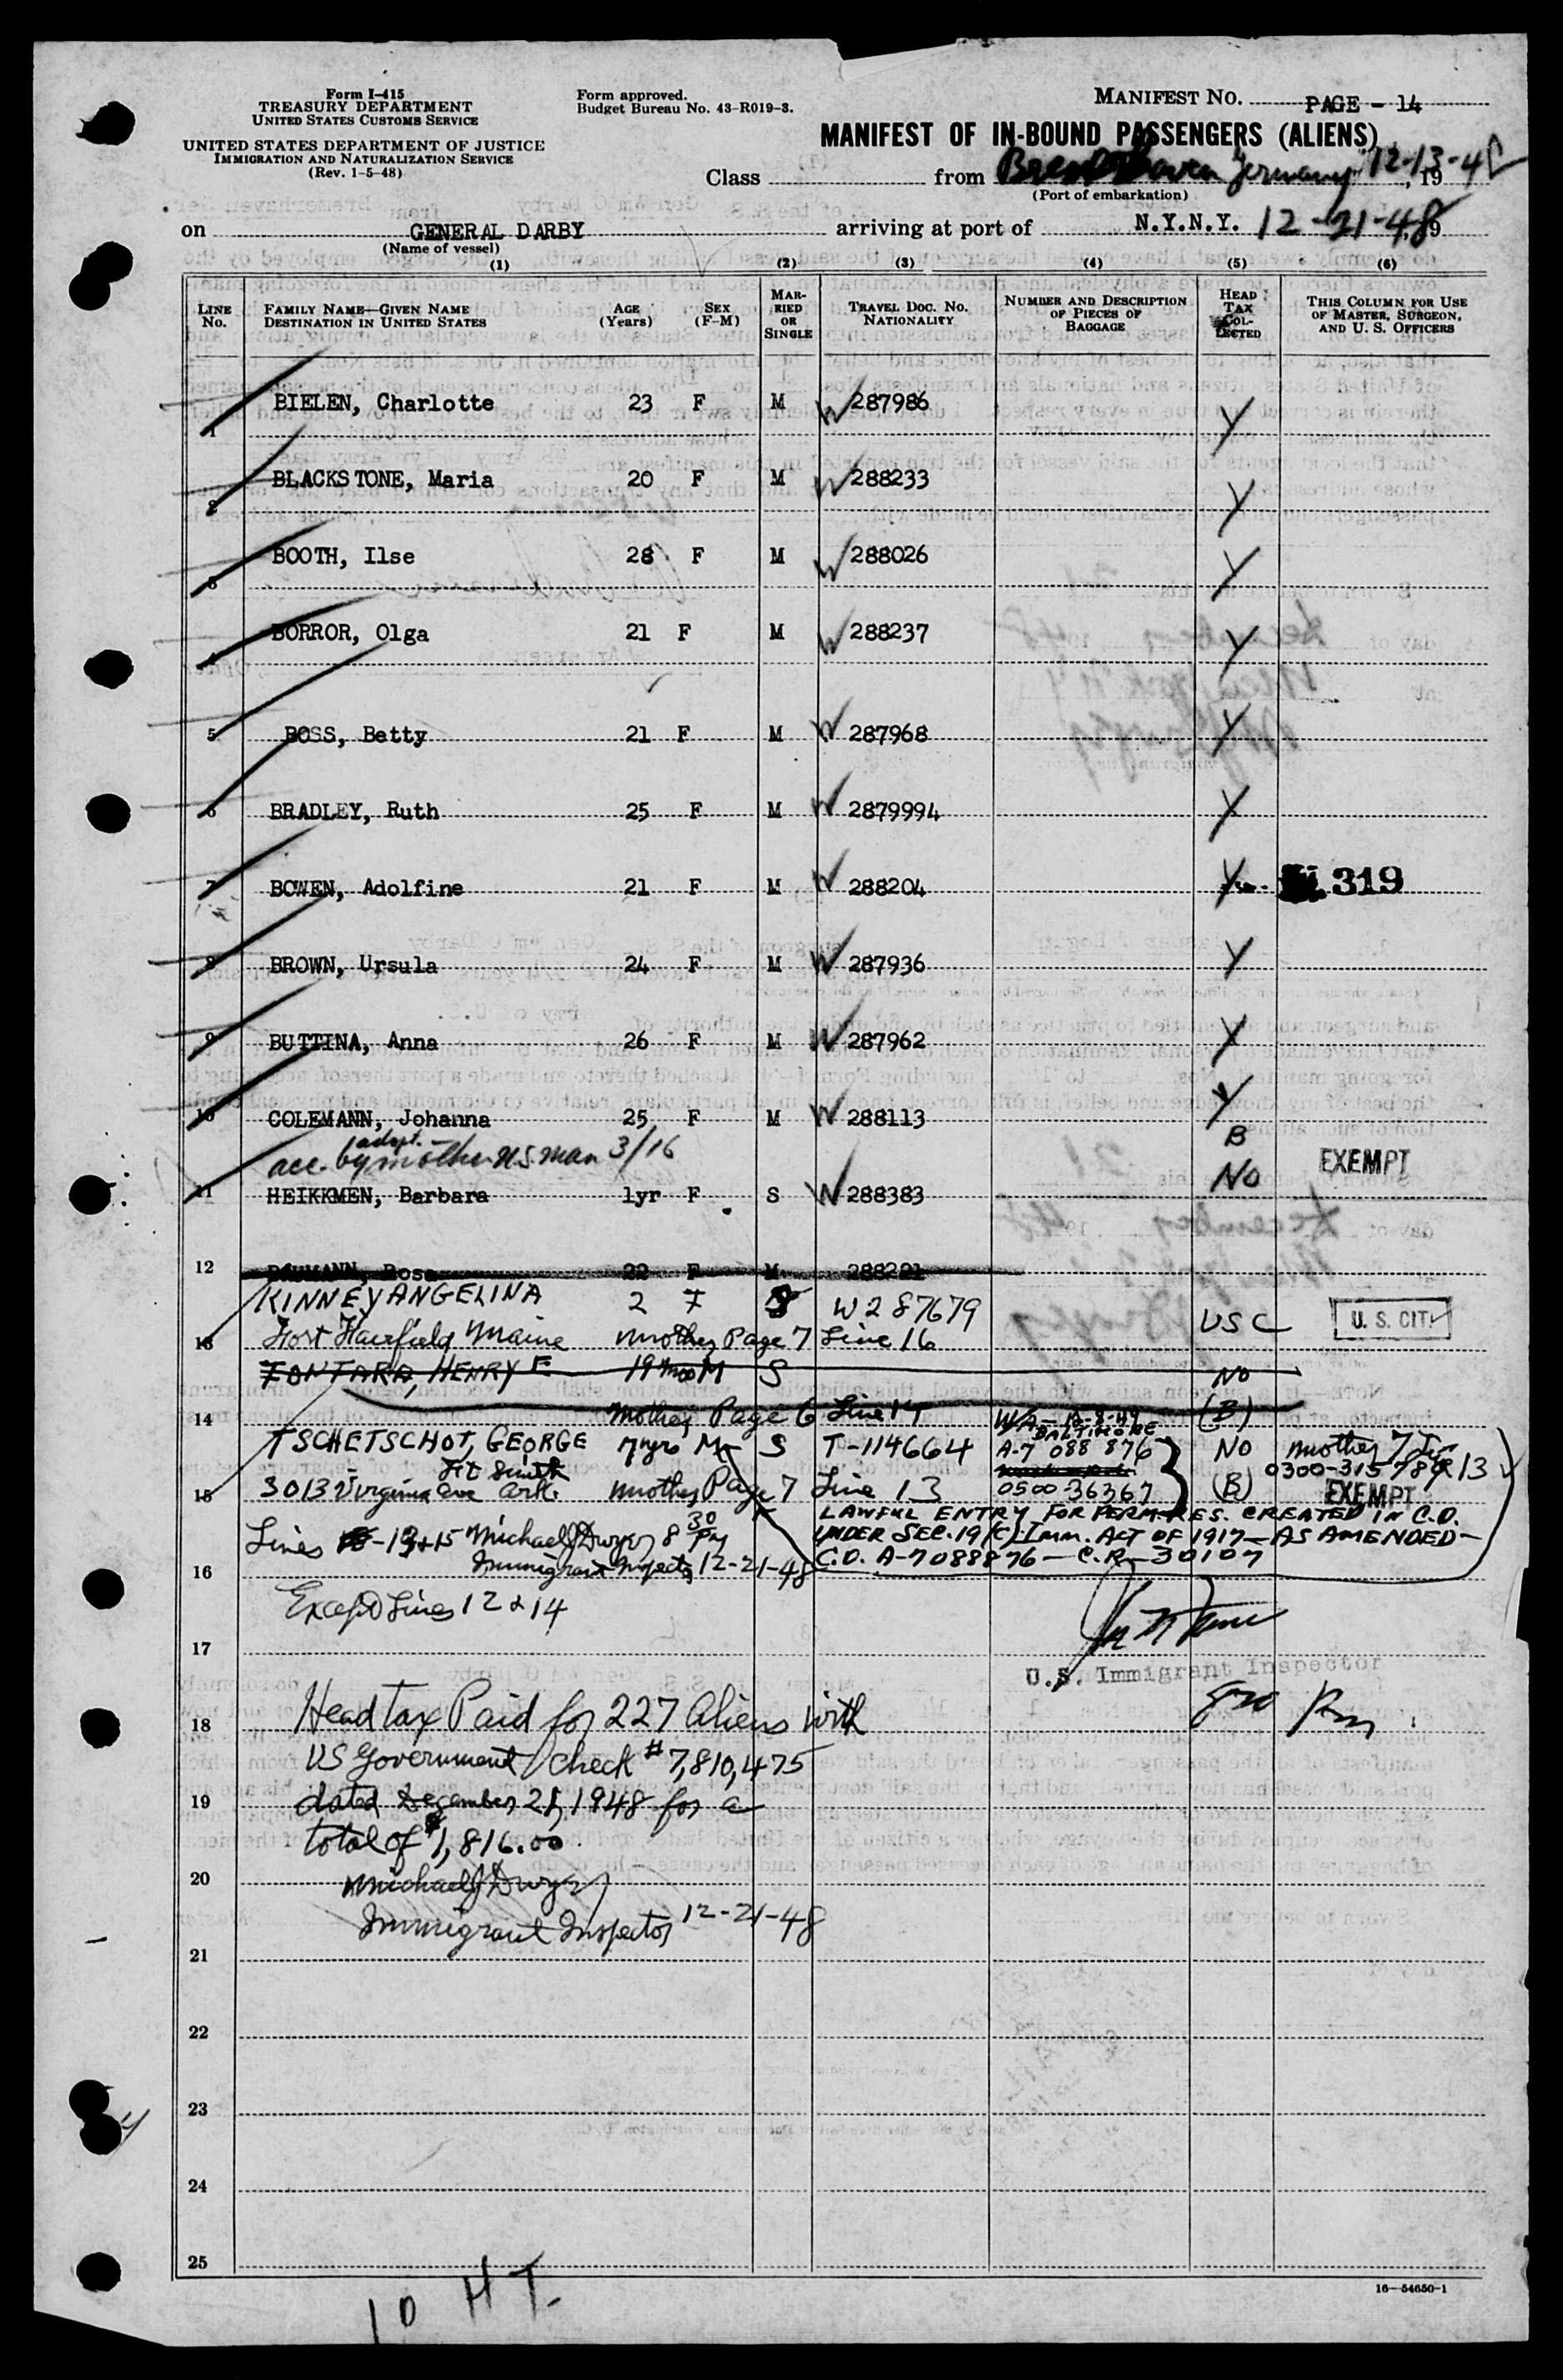 Form I-415
TREASURY DEPARTMENT
UNITED STATES CUSTOMS SERVICE
UNITED STATES DEPARTMENT OF JUSTICE
IMMIGRATION AND NATURALIZATION SERVICE
(Rev. 1-5-48)
Form approved.
Budget Bureau No. 43-R019-3.
MANIFEST NO. PAGE - 14
MANIFEST OF IN-BOUND PASSENGERS (ALIENS)
Class from Germany 12-13-48, 19
(Port of embarkation)
on GENERAL DARBY arriving at port of N.Y.N.Y. 12-21-48 19
(Name of vessel)
(1) (2) (3) (4) (5) (6)
LINE No. FAMILY NAME—GIVEN NAME DESTINATION IN UNITED STATES AGE (Years) SEX (F-M) MARRIED OR SINGLE TRAVEL DOC. No. NATIONALITY NUMBER AND DESCRIPTION OF PIECES OF BAGGAGE HEAD TAX COLLECTED THIS COLUMN FOR USE OF MASTER, SURGEON, AND U. S. OFFICERS
1 BIELEN, Charlotte 23 F M W 287986 Y
2 BLACKSTONE, Maria 20 F M W 288233 Y
3 BOOTH, Ilse 28 F M W 288026 Y
4 BORROR, Olga 21 F M W 288237 Y
5 BOSS, Betty 21 F M W 287968 Y
6 BRADLEY, Ruth 25 F M W 2879994 Y
7 BOWEN, Adolfine 21 F M W 288204 Y 319
8 BROWN, Ursula 24 F M W 287936 Y
9 BUTTINA, Anna 26 F M W 287962 Y
10 COLEMANN, Johanna 25 F M W 288113 Y
acc. by adopt. mother U.S. Man 3/16 B
11 HEIKKMEN, Barbara 1yr F S W 288383 No EXEMPT
12 BAUMANN, Rosa 22 F M 288201
KINNEY ANGELINA 2 F S W287679 USC U. S. CIT
13 Fort Fairfield Maine mother Page 7 Line 16
FONTARA, HENRY E 19 mos M S No
14 Mother Page 6 Line 17 W/A - 12-8-49 (B)
BALTIMORE
TSCHETSCHOT, GEORGE 7yrs M S T-114664 A-7 088 876 NO mother 7
0300-315784 13
15 3013 Virginia Ave Ft Smith Ark. Mother Page 7 Line 13 0500-36367 (B) EXEMPT
LAWFUL ENTRY FOR PERM. RES. CREATED IN C.O.
Lines -13+15 Michael J Dwyer 8 30 PM UNDER SEC. 19 (C) Imm. ACT OF 1917—AS AMENDED—
16 Immigrant Inspector 12-21-48 C.O. A-7088876 — C.R-30107
Except Lines 12 & 14
17
U.S. Immigrant Inspector
18 Head tax Paid for 227 Aliens with
US Government Check #7,810,475
19 dated December 21, 1948 for a
total of $1,816.00
20 Michael J Dwyer
Immigrant Inspector 12-21-48
21
22
23
24
25
10 HT.
16—54650-1